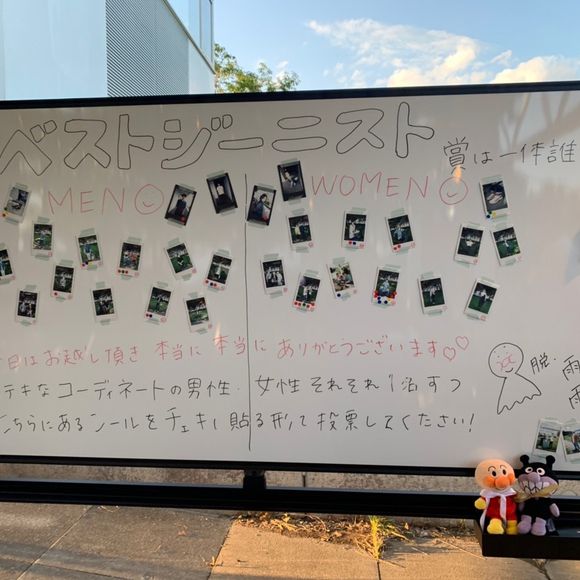 ベストジーニスト 賞は一体誰
MEN WOMEN
日はお越し頂き 本当に本当に ありがとうございます♡♡
テキなコーディネートの男性・女性それぞれ1泊ずつ
こちらにあるシールをチェキに貼る形で投票してください!
脱・雨